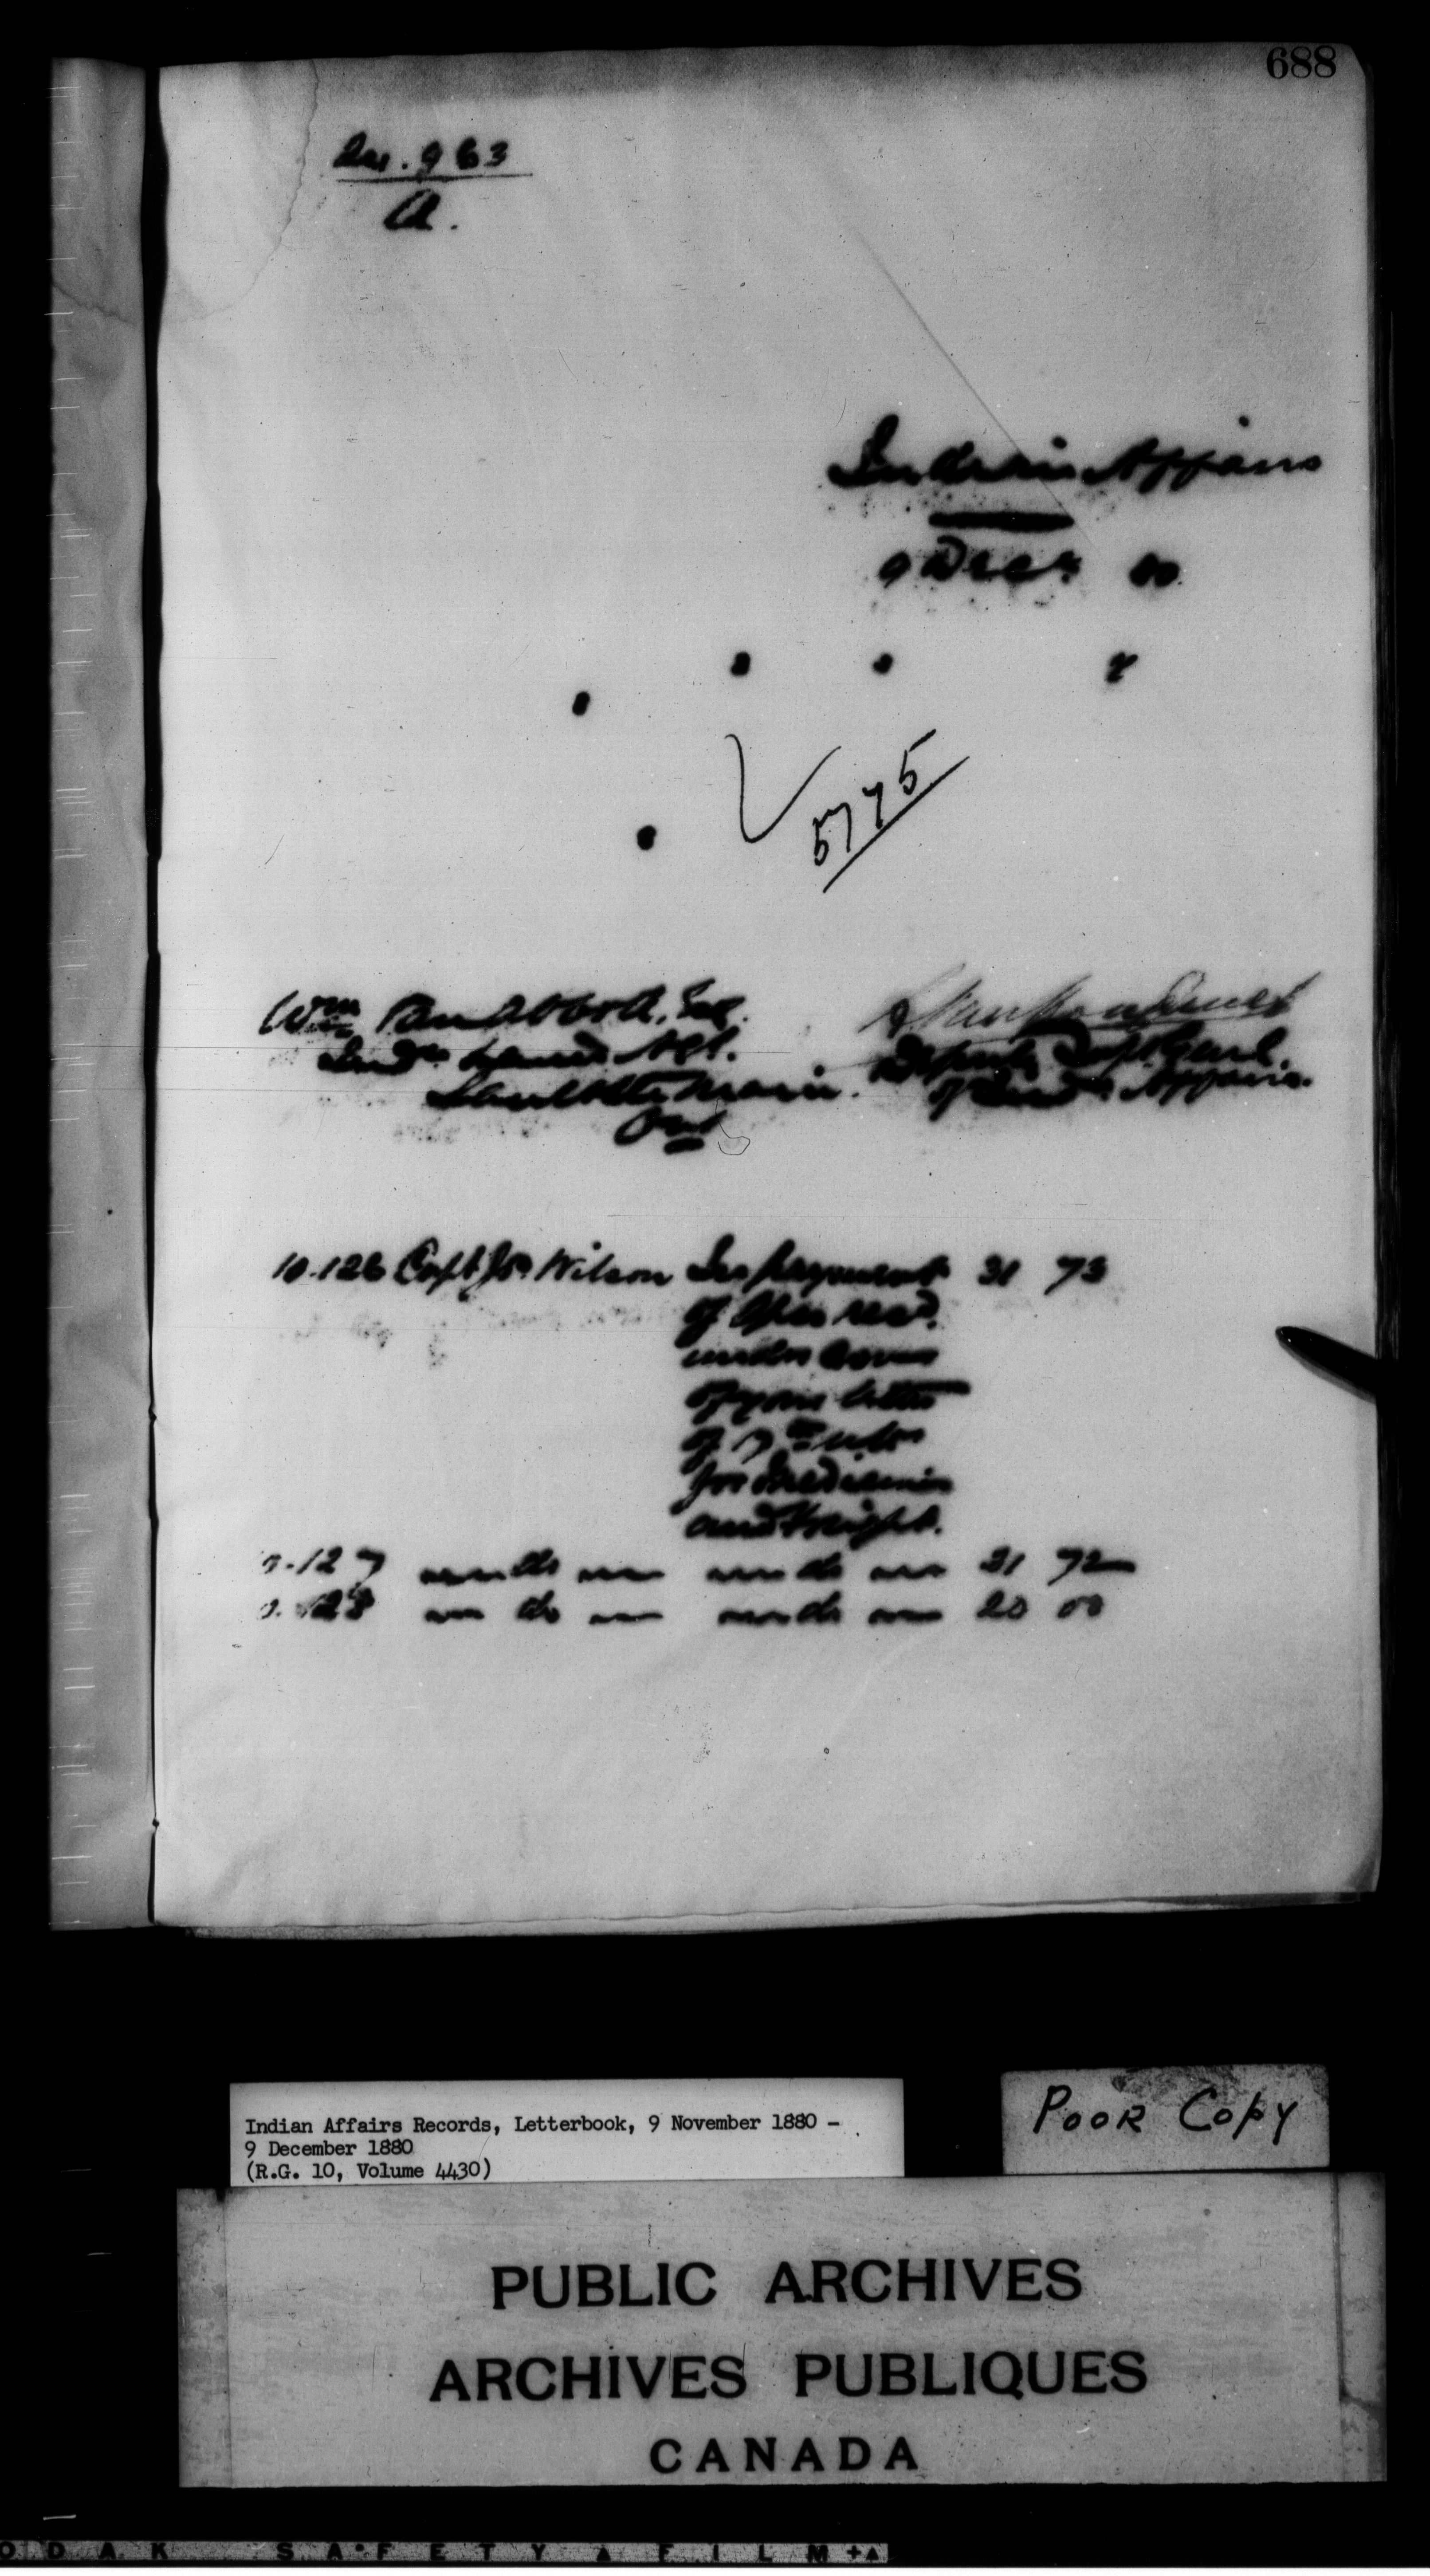 688
963
A.
Indian Affairs
9 Decr 80
5775
Wm Van Abbott, Esq.
Indn Land Agt.
Sault Ste Marie.
Ont
L Vankoughnet
Deputy Supt Genl.
of Indn Affairs.
10.126 Capt Jos. Wilson In payment 31 73
of a/cs recd.
under cover
of your letter
of 17th ulto
for Medicines
and freight.
.127 do do 31 72
.128 do do 20 00
Indian Affairs Records, Letterbook, 9 November 1880 –
9 December 1880
(R.G. 10, Volume 4430)
POOR COPY
PUBLIC ARCHIVES
ARCHIVES PUBLIQUES
CANADA
ODAK SAFETY FILM